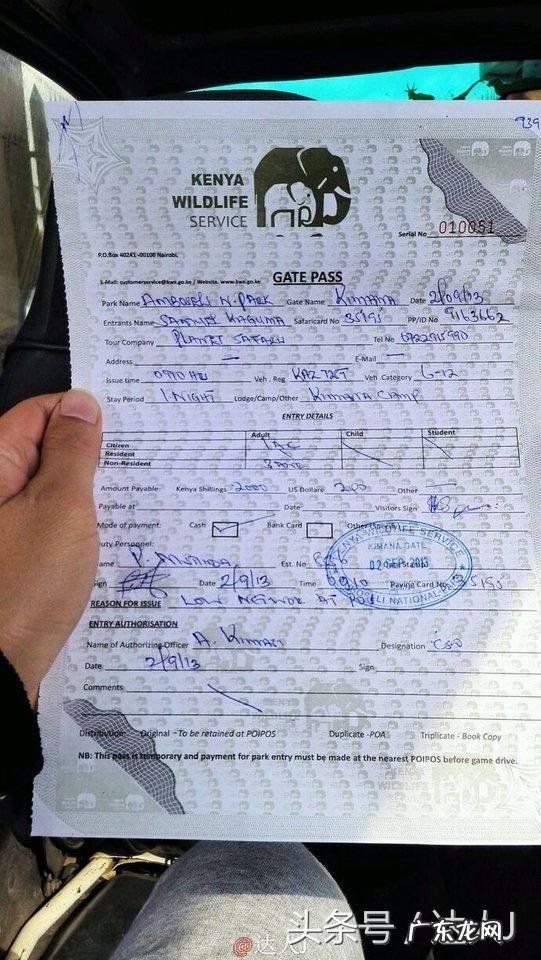 939
KENYA
WILDLIFE
SERVICE
Serial No 010051
P.O.Box 40241 -00100 Nairobi.
E-Mail: customerservice@kws.go.ke / Website. www.kws.go.ke
GATE PASS
Park Name AMBOSELI N. PARK Gate Name KIMANA Date 2/09/13
Entrants Name KAGUMA Safaricard No PP/ID No 9163662
Tour Company PLANET SAFARI Tel No 0722915990
Address — E-Mail —
Issue time 0710 Veh. Reg KAZ Veh. Category 6-12
Stay Period 1 NIGHT Lodge/Camp/Other KIMANA CAMP
ENTRY DETAILS
Adult Child Student
Citizen
Resident
Non-Resident
Amount Payable: Kenya Shillings 2000 US Dollars 200 Other
Payable at Date Visitors Sign
Mode of payment: Cash Bank Card Other (Specify)
Duty Personnel:
ame P. Est. No
KENYA WILDLIFE SERVICE
KIMANA GATE
02 SEP 2013
AMBOSELI NATIONAL PARK
Sign Date 2/9/13 Time 0710 Paying Card No
REASON FOR ISSUE LOW NETWORK AT POS
ENTRY AUTHORISATION
Name of Authorizing Officer A. Designation
Date 2/9/13 Sign
Comments
Distribution: Original –To be retained at POIPOS Duplicate -POA Triplicate - Book Copy
NB: This pass is temporary and payment for park entry must be made at the nearest POIPOS before game drive.
KENYA
WILDLIFE
头条号 / 达人J
@达人J
广东龙网